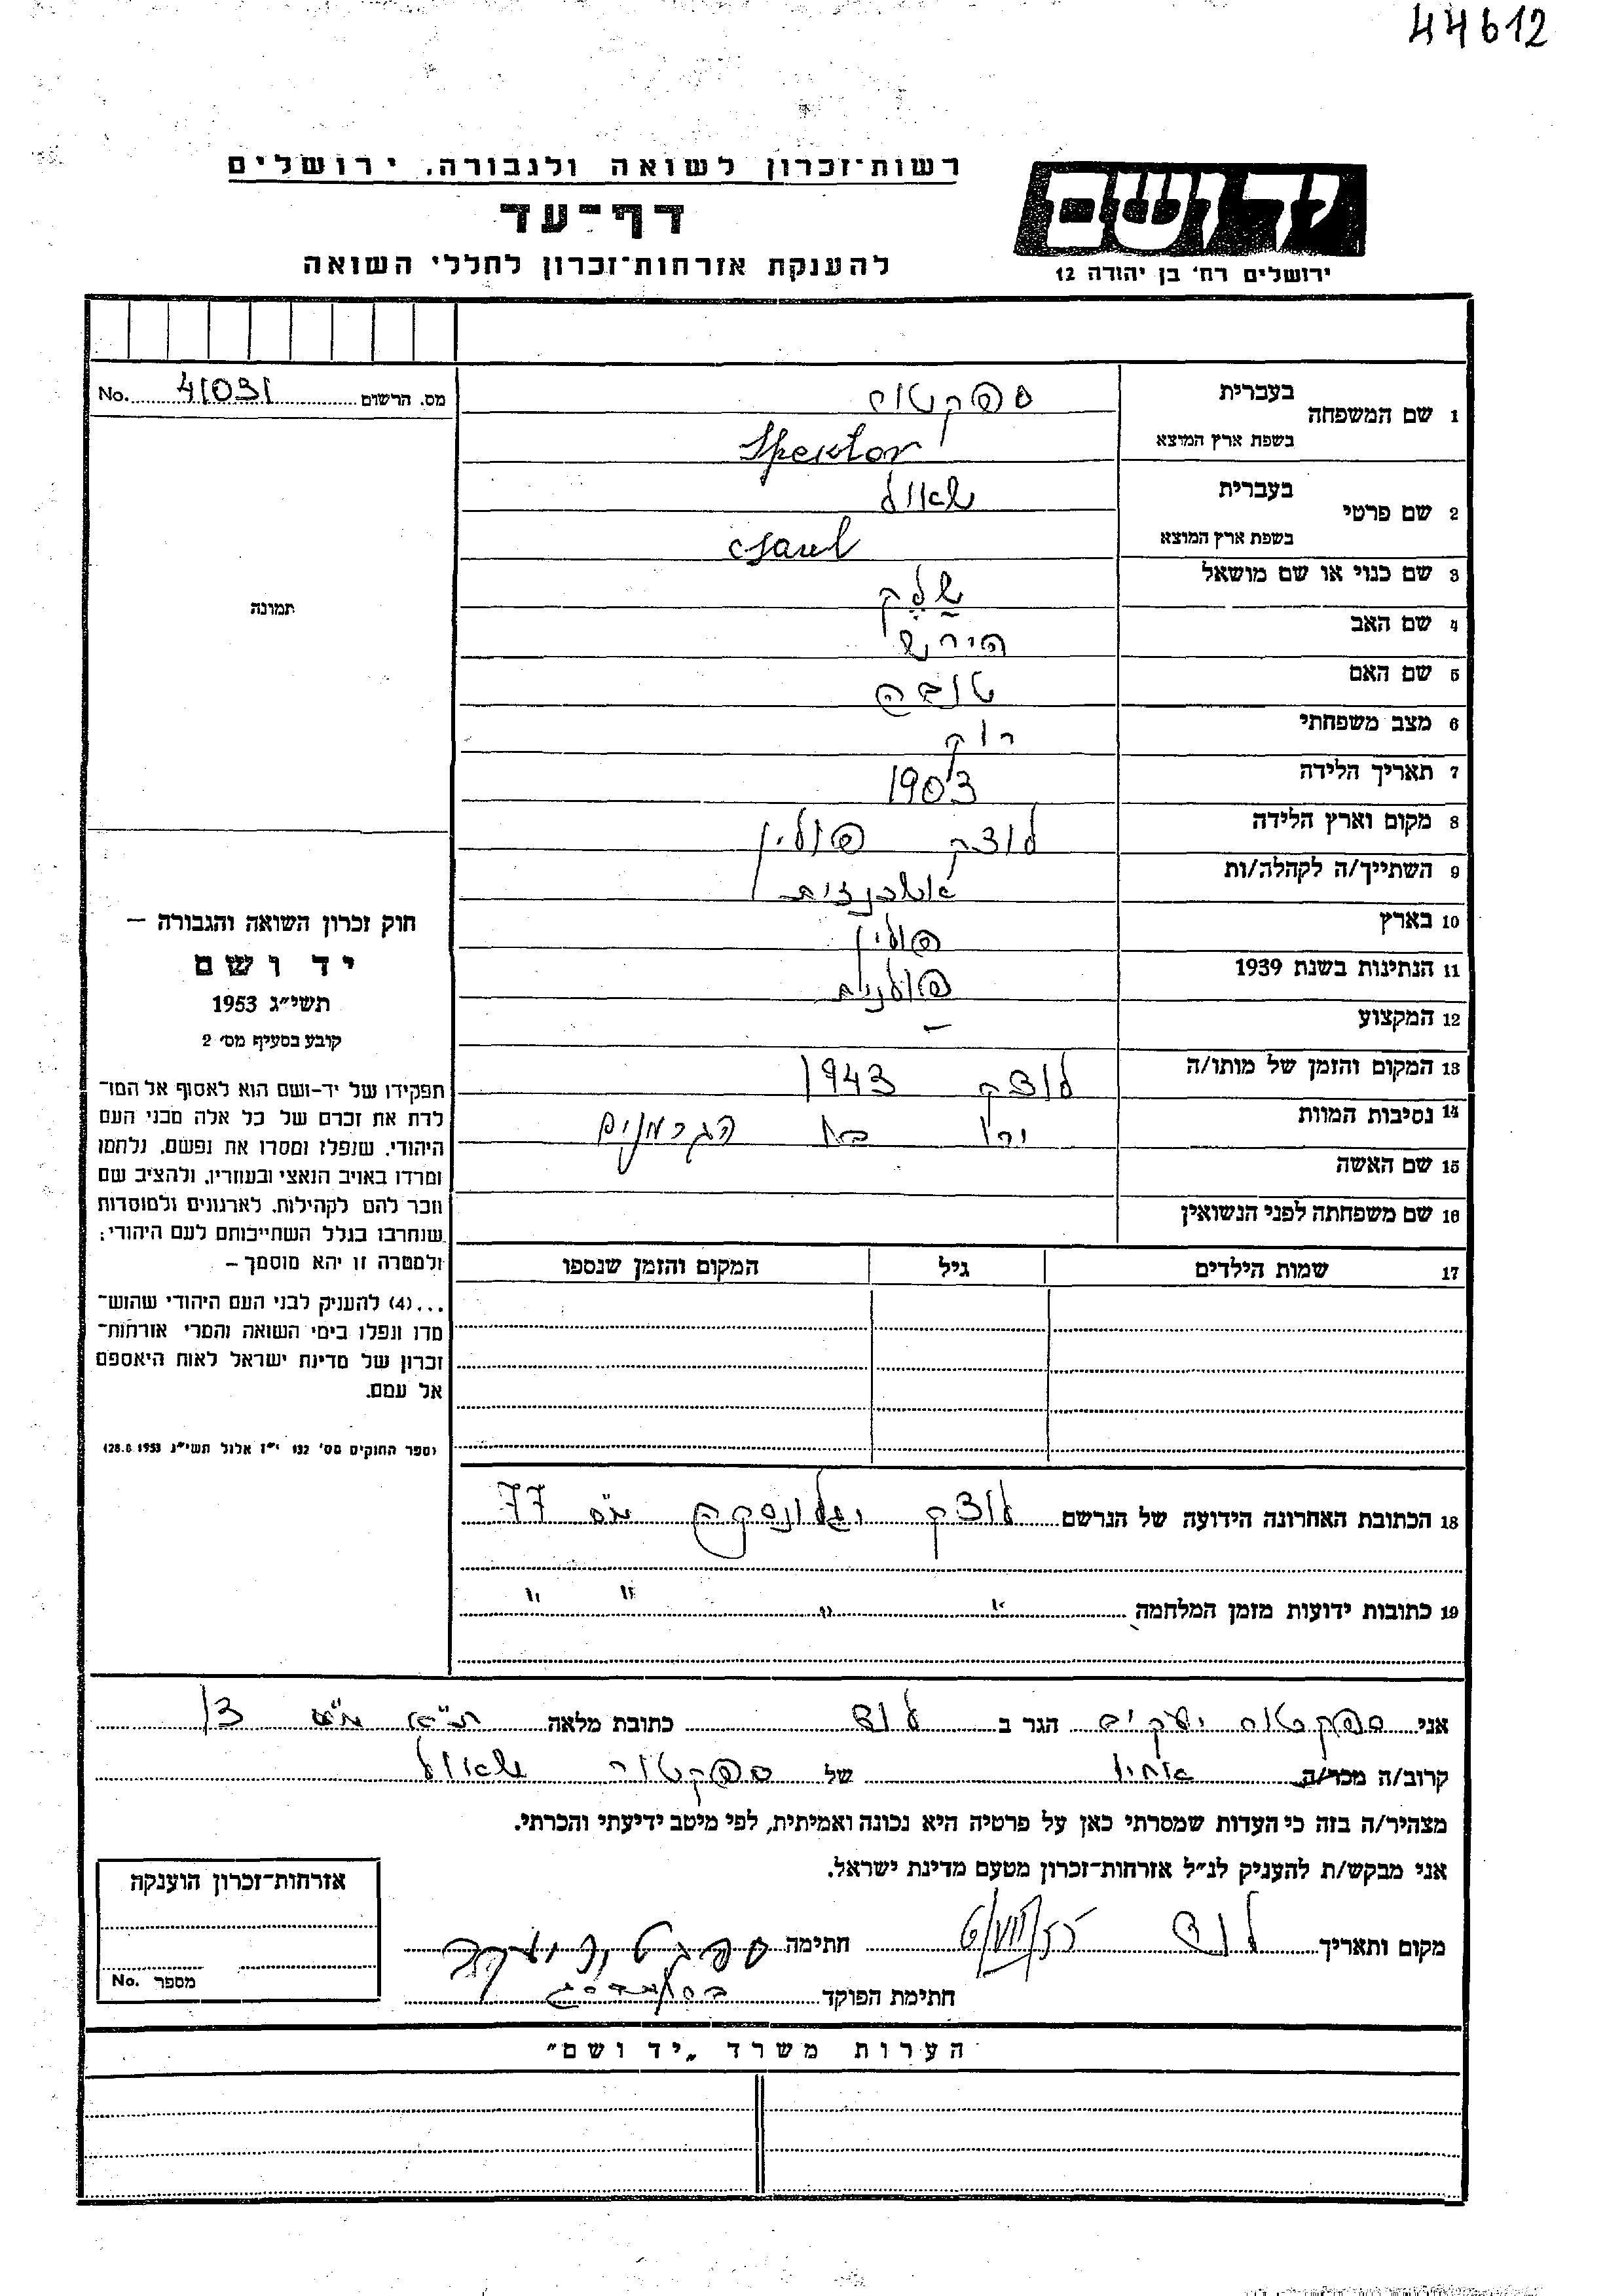 44612
ידושם
ירושלים רח' בן יהודה 12
רשות־זכרון לשואה ולגבורה, ירושלים
דף־עד
להענקת אזרחות־זכרון לחללי השואה
מס. הרשום 41031 No.
1 שם המשפחה בעברית ספקטור
בשפת ארץ המוצא Spektor
2 שם פרטי בעברית שאול
בשפת ארץ המוצא Saul
3 שם כנוי או שם מושאל
4 שם האב הירש
5 שם האם טובה
6 מצב משפחתי רוק
7 תאריך הלידה 1903
8 מקום וארץ הלידה לוצק פולין
9 השתייך/ה לקהלה/ות אשכנזית
10 בארץ פולין
11 הנתינות בשנת 1939 פולנית
12 המקצוע –
13 המקום והזמן של מותו/ה לוצק 1943
14 נסיבות המוות הגרמנים
15 שם האשה
16 שם משפחתה לפני הנשואין
17 שמות הילדים גיל המקום והזמן שנספו
18 הכתובת האחרונה הידועה של הנרשם לוצק מס 77
19 כתובות ידועות מזמן המלחמה " " " "
תמונה
חוק זכרון השואה והגבורה –
יד ושם
תשי"ג 1953
קובע בסעיף מס' 2
תפקידו של יד-ושם הוא לאסוף אל המו־
לדת את זכרם של כל אלה מבני העם
היהודי, שנפלו ומסרו את נפשם, נלחמו
ומרדו באויב הנאצי ובעוזריו, ולהציב שם
וזכר להם לקהילות, לארגונים ולמוסדות
שנחרבו בגלל השתייכותם לעם היהודי;
ולמטרה זו יהא מוסמך –
...(4) להעניק לבני העם היהודי שהוש־
מדו ונפלו בימי השואה והמרי אזרחות־
זכרון של מדינת ישראל לאות היאספם
אל עמם.
(ספר החוקים מס' 132 י"ז אלול תשי"ג 28.8.1953)
אני ספקטור יעקב הגר ב לוד כתובת מלאה
קרוב/ה מכר/ה אחיו של ספקטור שאול
מצהיר/ה בזה כי העדות שמסרתי כאן על פרטיה היא נכונה ואמיתית, לפי מיטב ידיעתי והכרתי.
אני מבקש/ת להעניק לנ"ל אזרחות־זכרון מטעם מדינת ישראל.
מקום ותאריך לוד 6/VII/55 חתימה
חתימת הפוקד
אזרחות־זכרון הוענקה
מספר No.
הערות משרד „יד ושם"